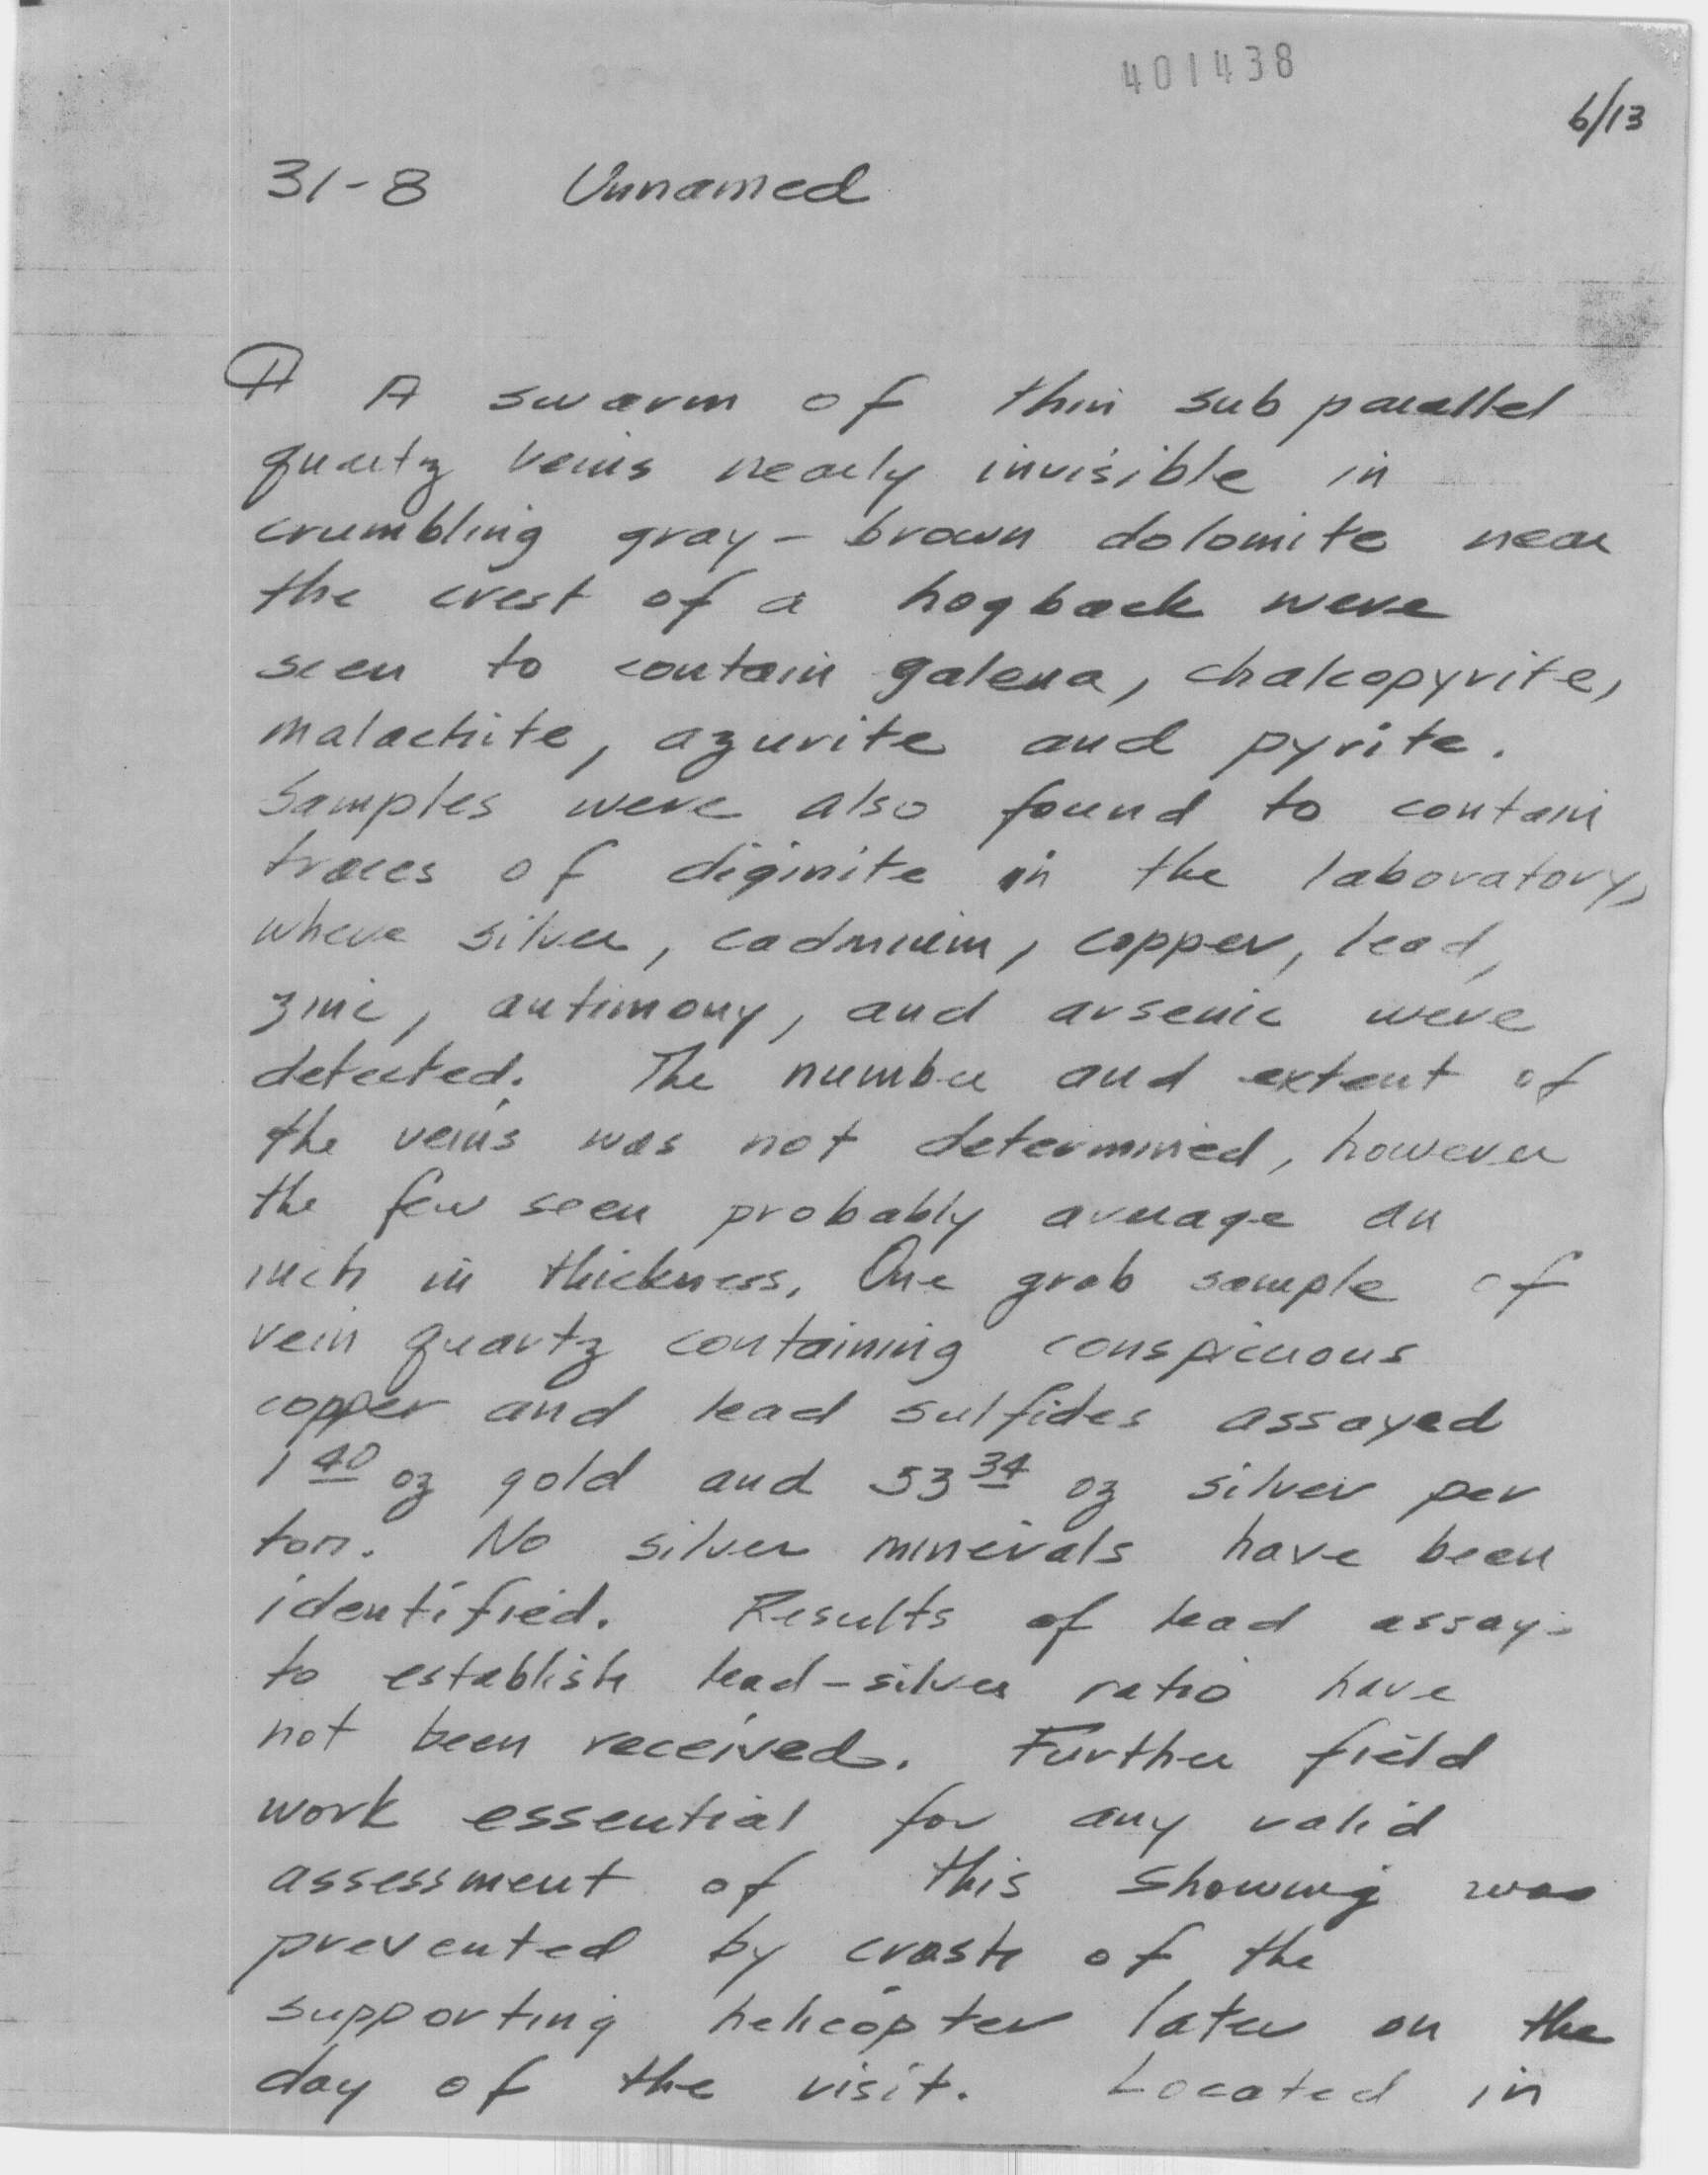 401438
6/13
31-8 Unnamed
A swarm of thin sub parallel
quartz veins nearly invisible in
crumbling gray-brown dolomite near
the crest of a hogback were
seen to contain galena, chalcopyrite,
malachite, azurite and pyrite.
Samples were also found to contain
traces of diginite in the laboratory,
where silver, cadmium, copper, lead,
zinc, antimony, and arsenic were
detected. The number and extent of
the veins was not determined, however
the few seen probably average an
inch in thickness. One grab sample of
vein quartz containing conspicuous
copper and lead sulfides assayed
1 40 oz gold and 53 34 oz silver per
ton. No silver minerals have been
identified. Results of lead assays
to establish lead-silver ratio have
not been received. Further field
work essential for any valid
assessment of this showing was
prevented by crash of the
supporting helicopter later on the
day of the visit. Located in